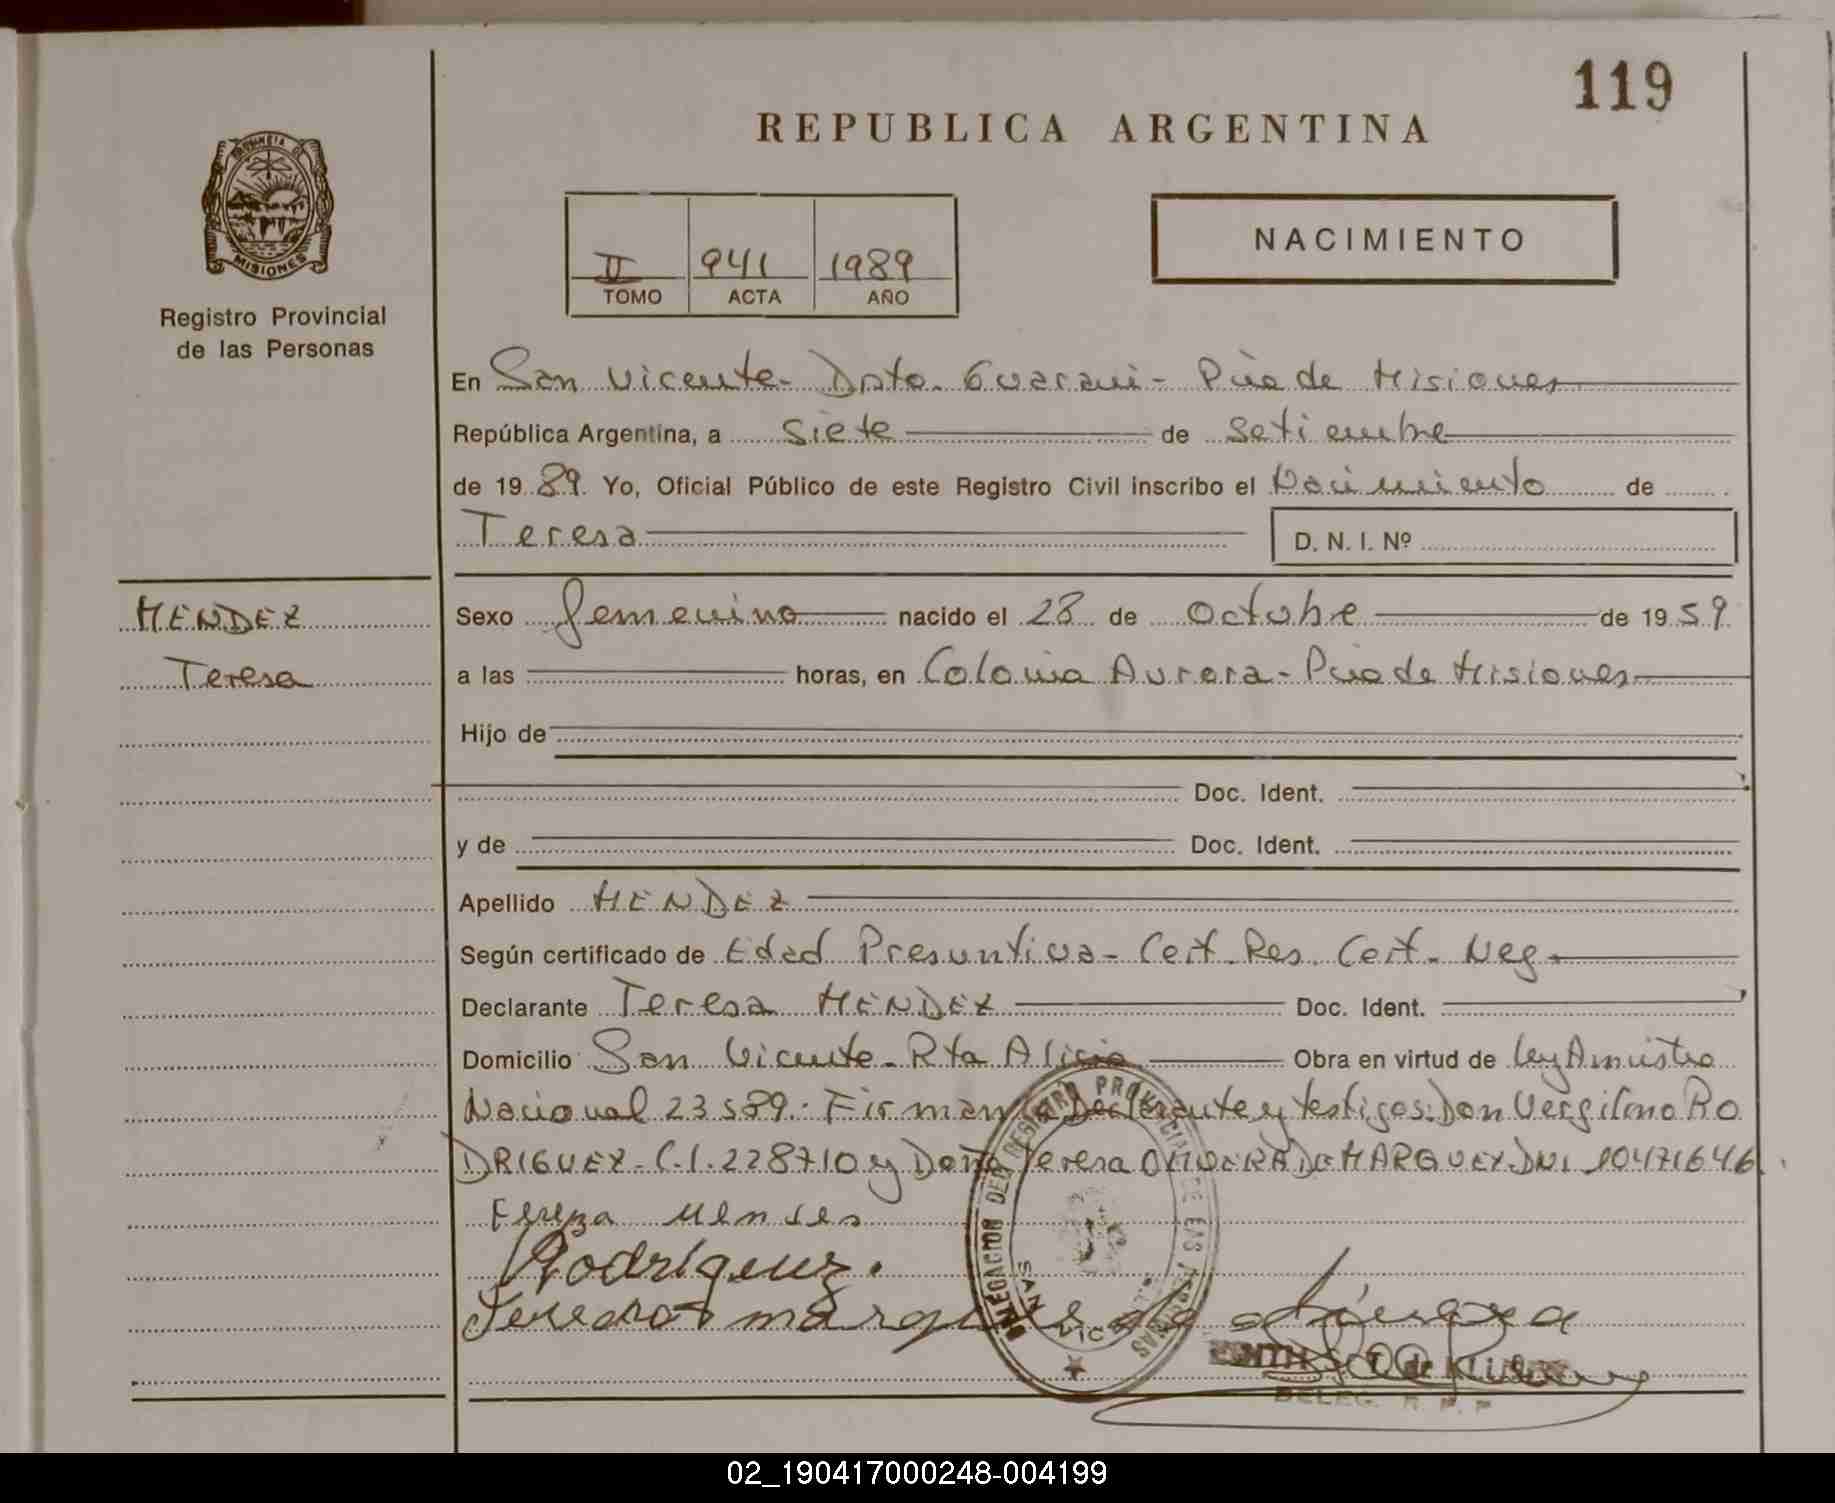 119
REPUBLICA ARGENTINA
PROVINCIA DE MISIONES
Registro Provincial
de las Personas
II 941 1989
TOMO ACTA AÑO
NACIMIENTO
En San Vicente - Dpto. Guarani - Pcia de Misiones
República Argentina, a siete de setiembre
de 1989 Yo, Oficial Público de este Registro Civil inscribo el Nacimiento de
Teresa D. N. I. Nº
MENDEZ
Teresa
Sexo femenino nacido el 28 de Octubre de 1959
a las horas, en Colonia Aurora - Pcia de Misiones
Hijo de
Doc. Ident.
y de Doc. Ident.
Apellido MENDEZ
Según certificado de Edad Presuntiva - Cert. Res. Cert. Neg.
Declarante Teresa MENDEZ Doc. Ident.
Domicilio San Vicente - Rta Alicia Obra en virtud de ley Amnistia
Nacional 23589. Firman la Declarante y testigos: Don Vergilino RO
DRIGUEZ - C.I. 228710 y Doña Teresa OLIVERA DE MARQUEZ DNI 10471646
Rodríguez.
DELEGACION DEL REGISTRO PROVINCIAL DE LAS PERSONAS
SAN VICENTE
DELEG. R. P. P
02_190417000248-004199